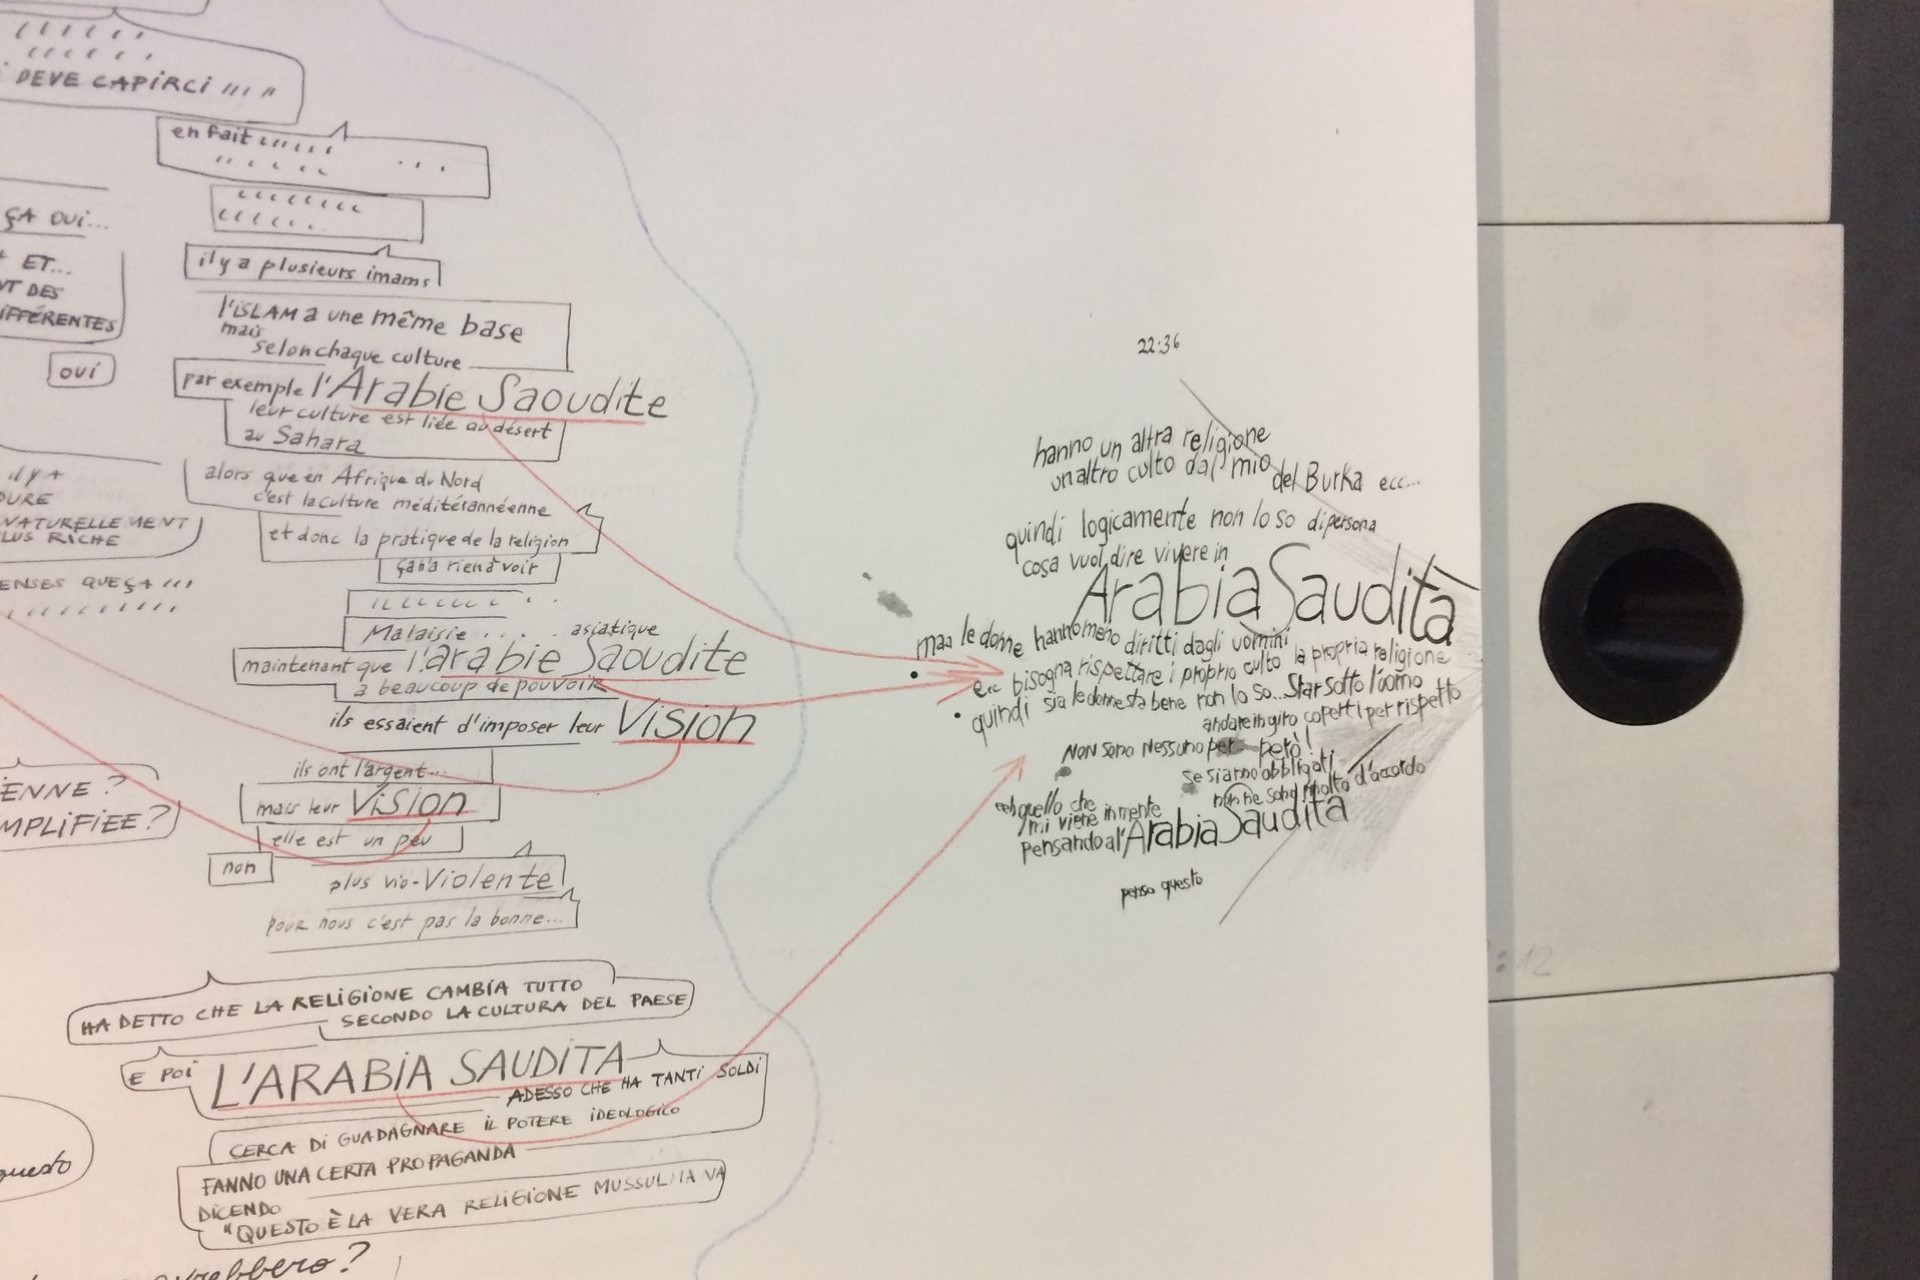 DEVE CAPIRCI
en fait
ÇA OUI...
ET...
DES
DIFFÉRENTES
OUI
il y a plusieurs imams
l'ISLAM a une même base
mais
selon chaque culture
par exemple l'Arabie Saoudite
leur culture est liée au désert
au Sahara
il y a
DURE
NATURELLEMENT
PLUS RICHE
PENSES QUE ÇA
alors que en Afrique du Nord
c'est la culture méditérannéenne
et donc la pratique de la religion
ça n'a rien à voir
Malaisie . . . . asiatique
maintenant que l'arabie Saoudite
a beaucoup de pouvoir
ils essaient d'imposer leur Vision
ils ont l'argent...
mais leur Vision
elle est un peu
non
plus vio-Violente
pour nous c'est pas la bonne...
ENNE ?
MPLIFIÉE ?
HA DETTO CHE LA RELIGIONE CAMBIA TUTTO
SECONDO LA CULTURA DEL PAESE
E POI L'ARABIA SAUDITA
ADESSO CHE HA TANTI SOLDI
CERCA DI GUADAGNARE IL POTERE IDEOLOGICO
FANNO UNA CERTA PROPAGANDA
DICENDO
"QUESTO È LA VERA RELIGIONE MUSSULMA VA
questo
vrebbero?
22:36
hanno un altra religione
un altro culto dal mio del Burka ecc...
quindi logicamente non lo so di persona
cosa vuol dire vivere in
Arabia Saudita
maa le donne hanno meno diritti dagli uomini
ecc bisogna rispettare i proprio culto la propria religione
quindi sia le donne sta bene non lo so... Star sotto l'uomo
andare in giro coperti per rispetto
NON sono Nessuno per però!
Se siamo obbligati
non ne sono molto d'accordo
eeh quello che
mi viene in mente
pensando all'Arabia Saudita
penso questo
:12